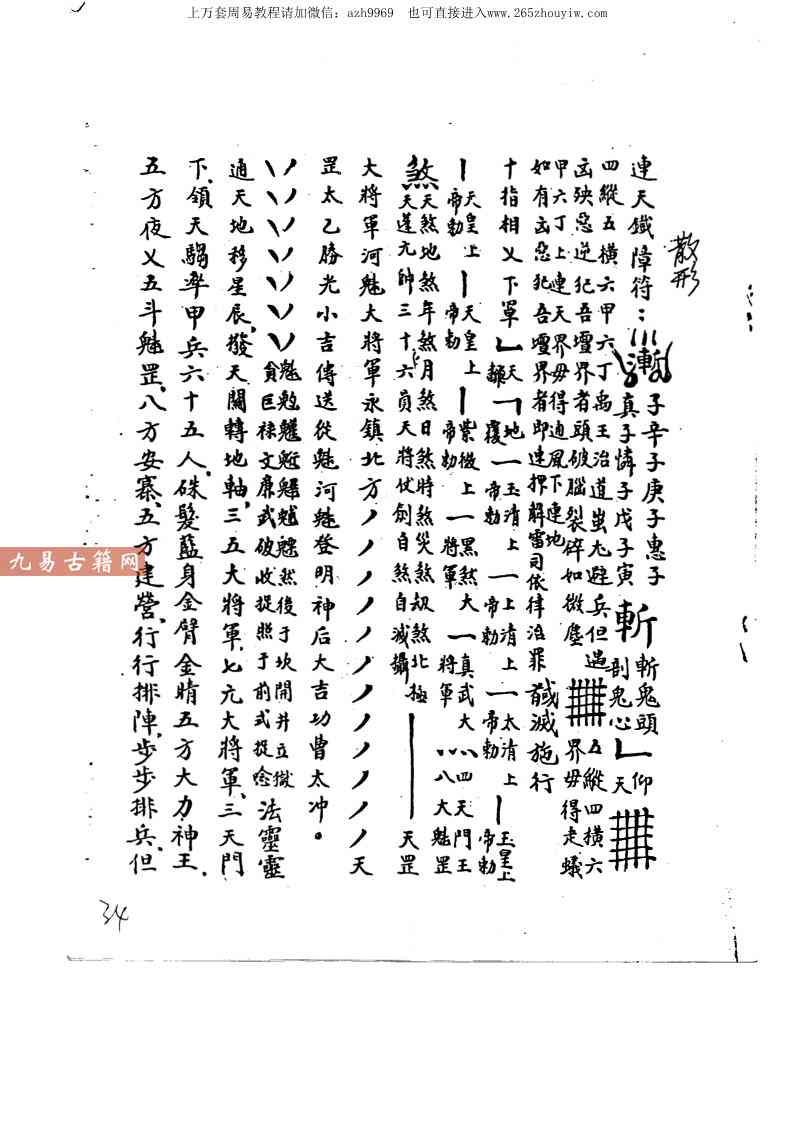 上万套周易教程请加微信：azh9969 也可直接进入www.265zhouyiw.com
散形
連天鐵障符：
漸
子辛子庚子惠子
真子憐子戊子寅
斬
斬鬼頭
剖鬼心
仰
天
四縱五橫六甲六丁禹王治道蚩尤避兵但遇
五縱四橫六
凶殃惡逆犯吾壇界者頭破腦裂碎如微塵
界毋得走蟻
甲六丁上連天界毋得通風下連地
如有凶惡犯吾壇界者即速押解雷司依律治罪
馘滅施行
十指相乂下罩
天
離
地
覆
玉清上
帝勅
上清上
帝勅
太清上
帝勅
玉皇上
帝勅
天皇上
帝勅
天皇上
帝勅
紫微上
帝勅
黑煞大
將軍
真武大
將軍
四天門王
八大魁罡
煞
天煞地煞年煞月煞日煞時煞災煞刼煞北極
天蓬元帥三十六員天將仗劍自煞自滅攝
天罡
大將軍河魁大將軍永鎮北方
天
罡太乙勝光小吉傳送從魁河魁登明神后大吉功曹太冲。
然後于坎開井立獄
貪巨祿文廉武破收捉照于前式捉唸
法靈靈
通天地移星辰,發天關轉地軸,三五大將軍,七元大將軍,三天門
下,領天騶率甲兵六十五人,硃髮藍身金臂金睛五方大力神王,
五方夜乂五斗魁罡,八方安寨,五方建營,行行排陣,步步排兵,但
九易古籍网
34